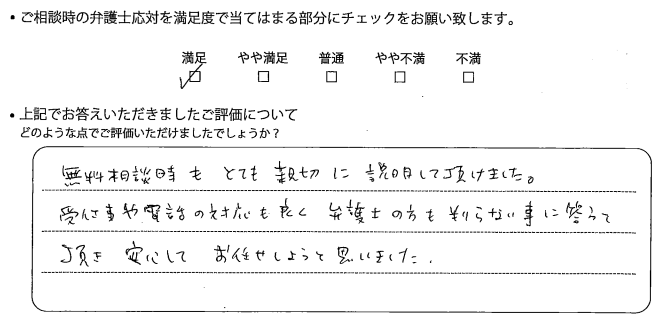 ・ご相談時の弁護士応対を満足度で当てはまる部分にチェックをお願い致します。
満足 やや満足 普通 やや不満 不満
・上記でお答えいただきましたご評価について
どのような点でご評価いただけましたでしょうか？
無料相談時も とても 親切に 説明して頂けました。
受付や電話の対応も良く 弁護士の方も 判らない事に答えて
頂き 安心して お任せしようと思いました.